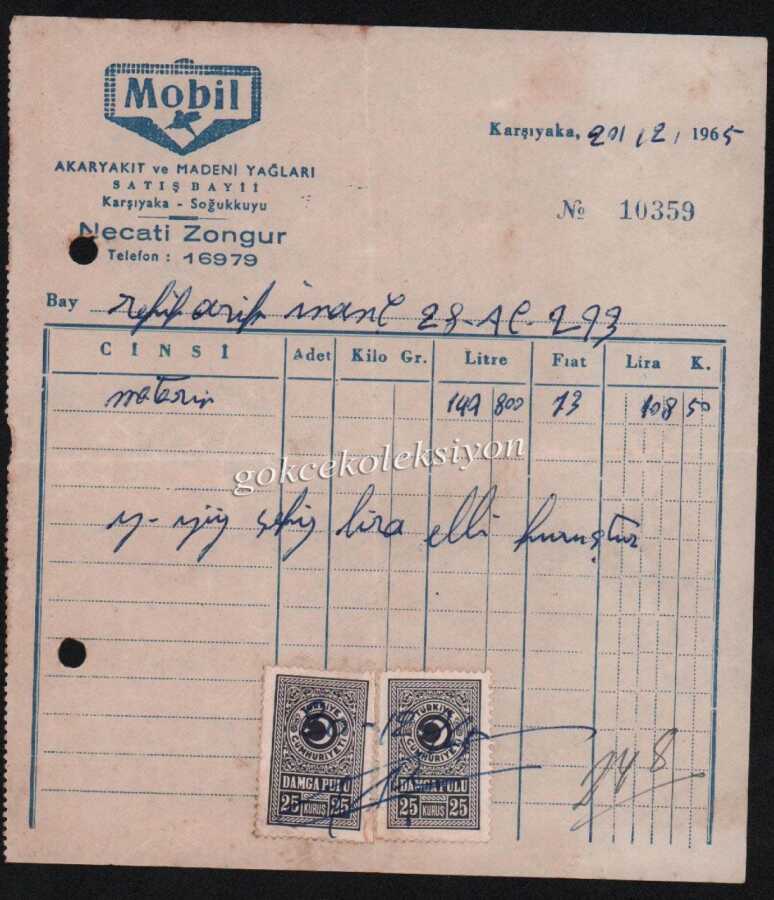 Mobil
AKARYAKIT ve MADENİ YAĞLARI
SATIŞ BAYİİ
Karşıyaka - Soğukkuyu
Necati Zongur
Telefon : 16979
Karşıyaka, 20/12/1965
№ 10359
Bay arif inanç
CİNSİ Adet Kilo Gr. Litre Fiat Lira K.
motorin 800 73 108 50
y- yüz sekiz lira elli kuruştur
gokcekoleksiyon
TÜRKİYE CUMHURİYETİ
DAMGA PULU
25 KURUŞ 25
TÜRKİYE CUMHURİYETİ
DAMGA PULU
25 KURUŞ 25
248